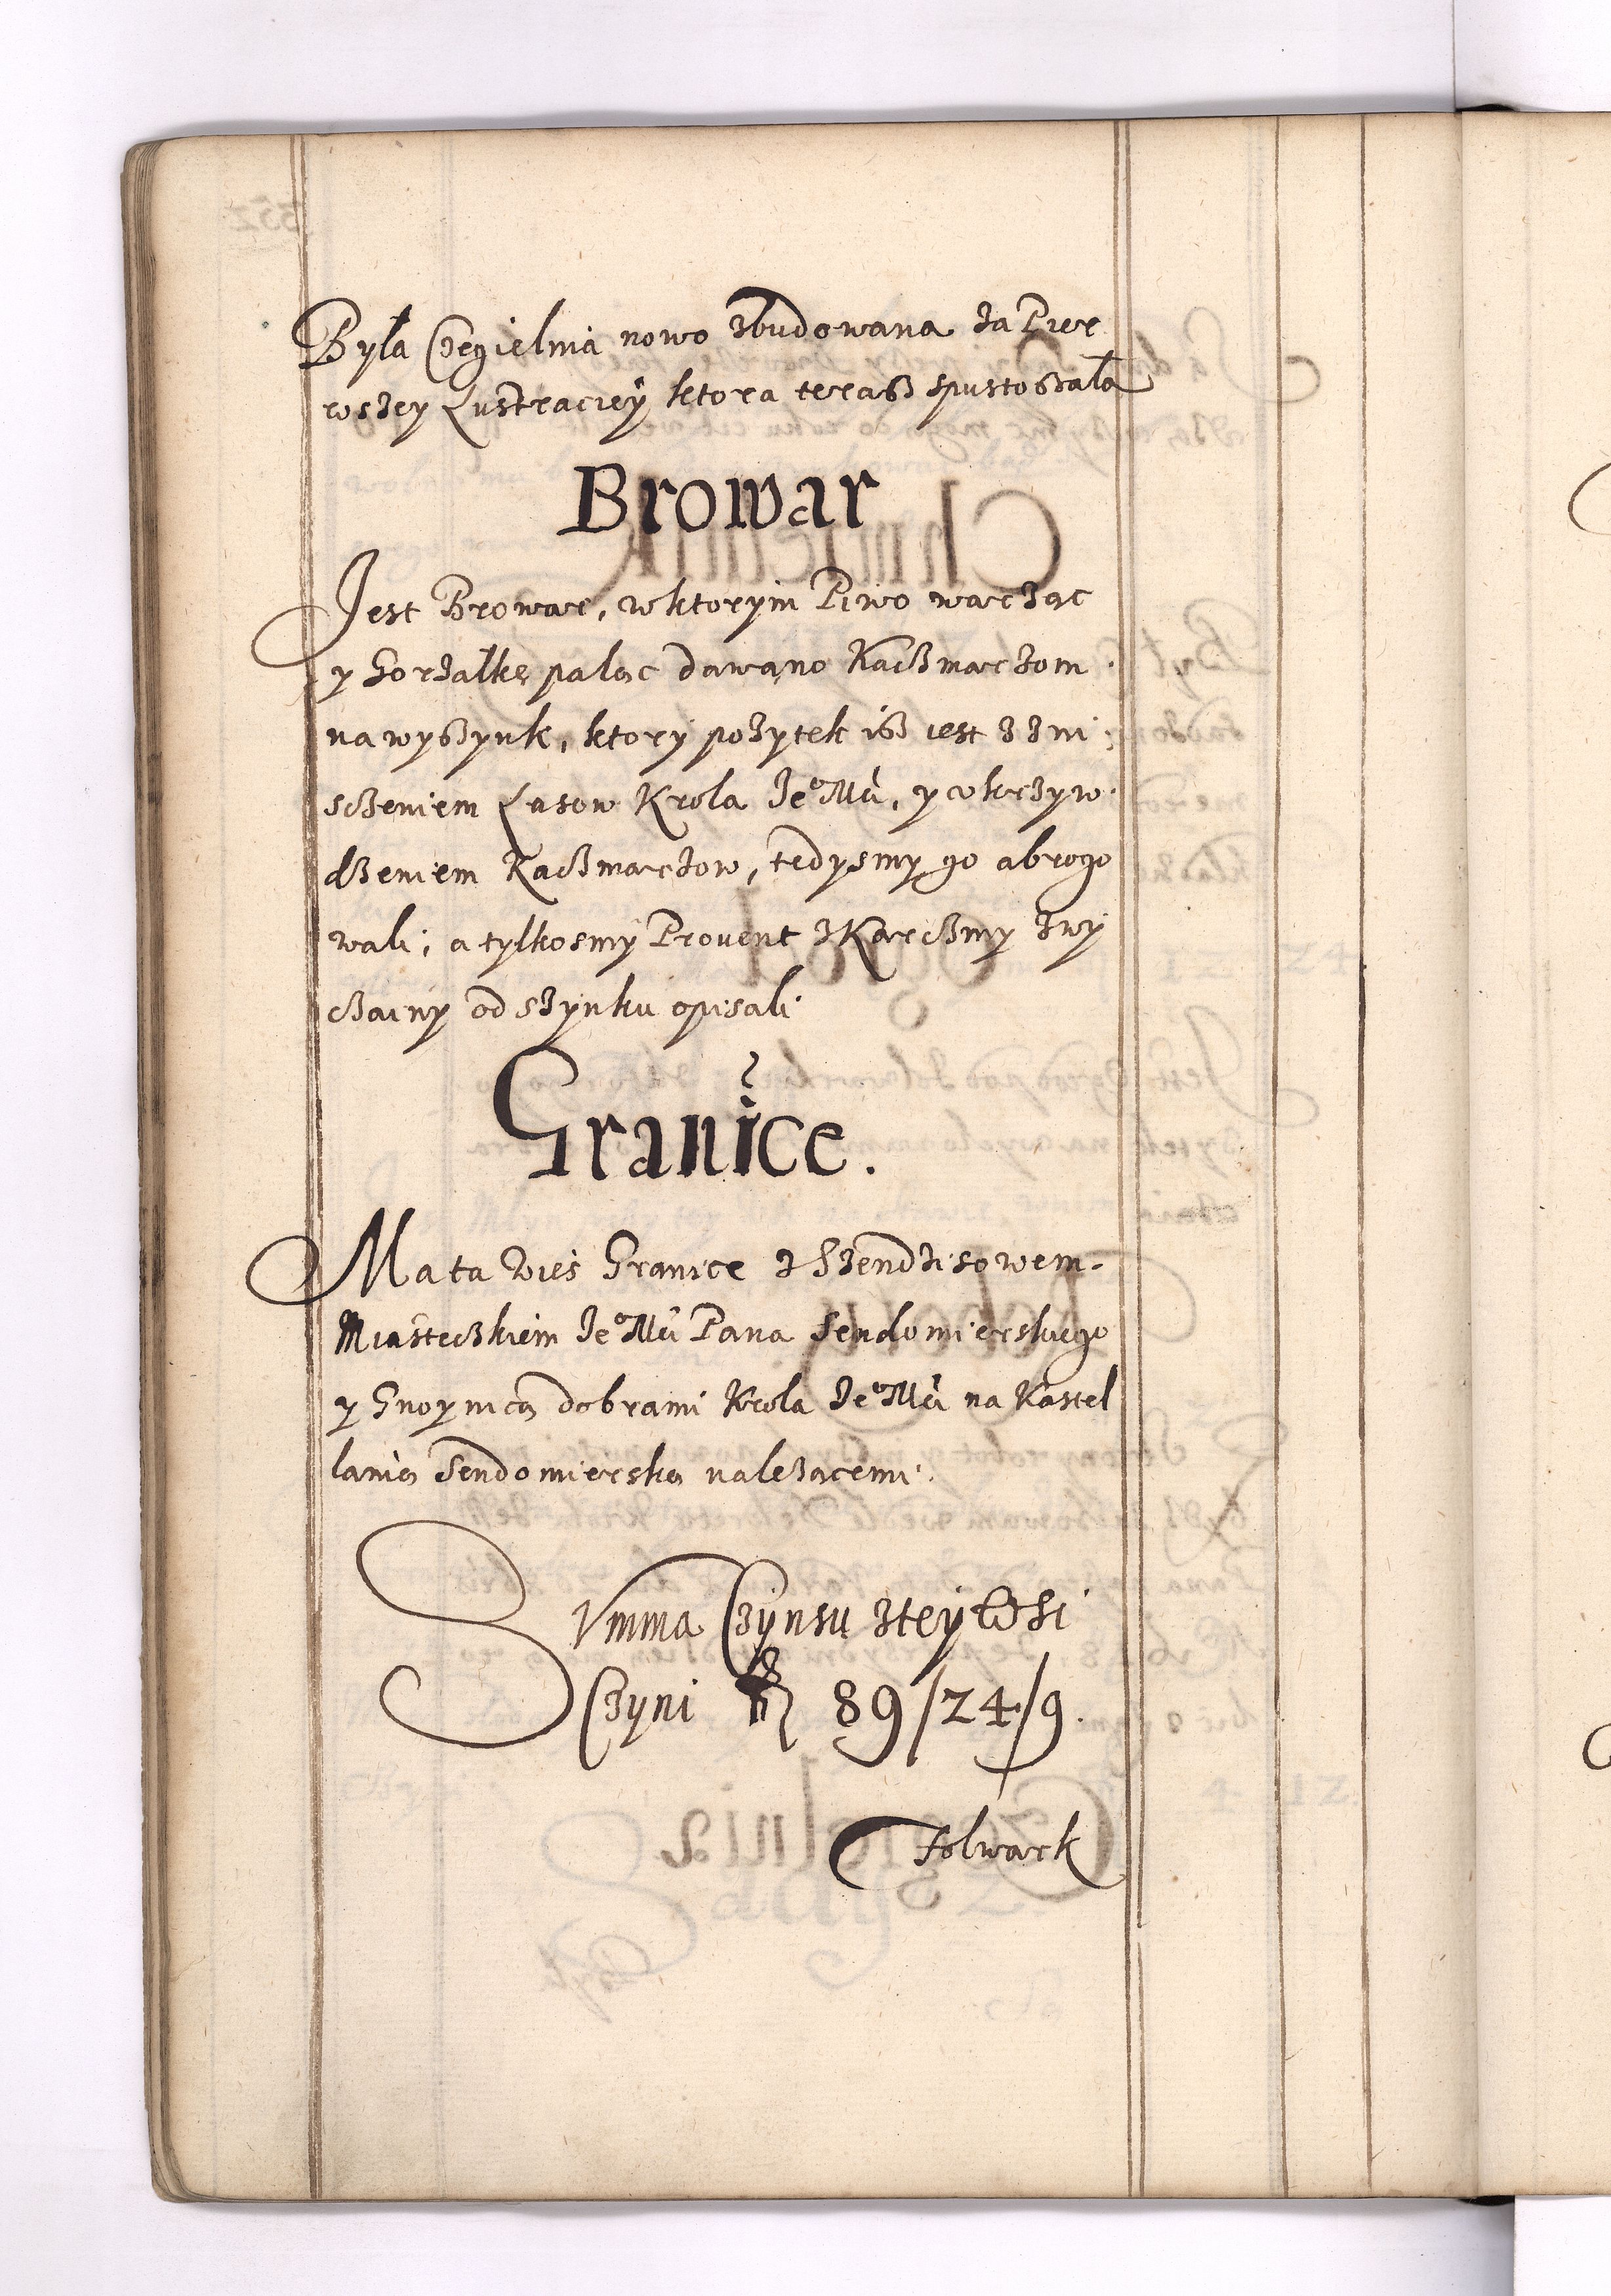 Była Czegielnia nowo zbudowana za Pier
wszey Lustraciey ktora terasz spustoszała
Browar
Jest Browar, wktorym Piwo warząc
y Gorzałkę paląc dawano Kaczmarzom
na wyszynk, ktory pożytek isz iest z zni
sczeniem Lasow Krola Je°Mci, y vkrzyw
dzeniem Kaczmarzow, tedysmy go abrogo
wali, a tylkosmy Provent z Karczmy zwy
czainy od szynku opisali
Granice.
Ma ta Wieś Granice z Szendziszowem
Miasteczkiem Je°Mci Pana Sendomierskiego
y Gnoynicą dobrami Krola Je°Mci na Kastel
lanią Sendomierską należacemi.
Summa Czynsu zteỹ Wsi
Czyni fl 89/24/9.
Folwark